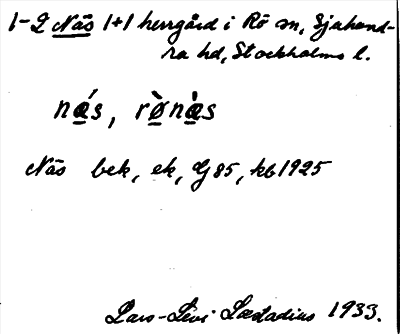 1-2 Näs 1+1 herrgård i Rö sn, Sjuhund-
ra hd, Stockholms l.
na̲´s, rø̲̀nà̲s
Näs bek, ek, G85, kb1925
Lars-Levi Læstadius 1933.